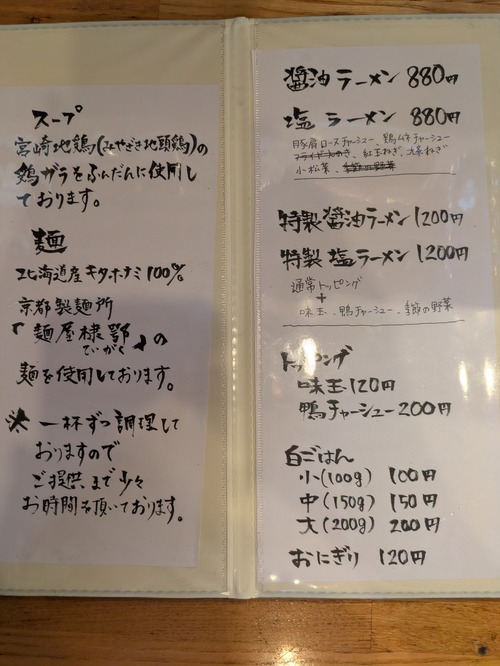 スープ
宮崎地鶏(みやざき地頭鶏)の
鶏ガラをふんだんに使用し
ております。
麺
北海道産キタホナミ100%
京都製麺所
「麺屋棣鄂」の
ていがく
麺を使用しております。
※ 一杯ずつ調理して
おりますので
ご提供まで少々
お時間を頂いております。
醤油ラーメン 880円
塩ラーメン 880円
豚肩ロースチャーシュー、鶏ムネチャーシュー
紅玉ねぎ、九条ねぎ
小松菜、季節の野菜
特製醤油ラーメン 1200円
特製塩ラーメン 1200円
通常トッピング
+
味玉、鴨チャーシュー、季節の野菜
トッピング
味玉 120円
鴨チャーシュー 200円
白ごはん
小(100g) 100円
中(150g) 150円
大(200g) 200円
おにぎり 120円